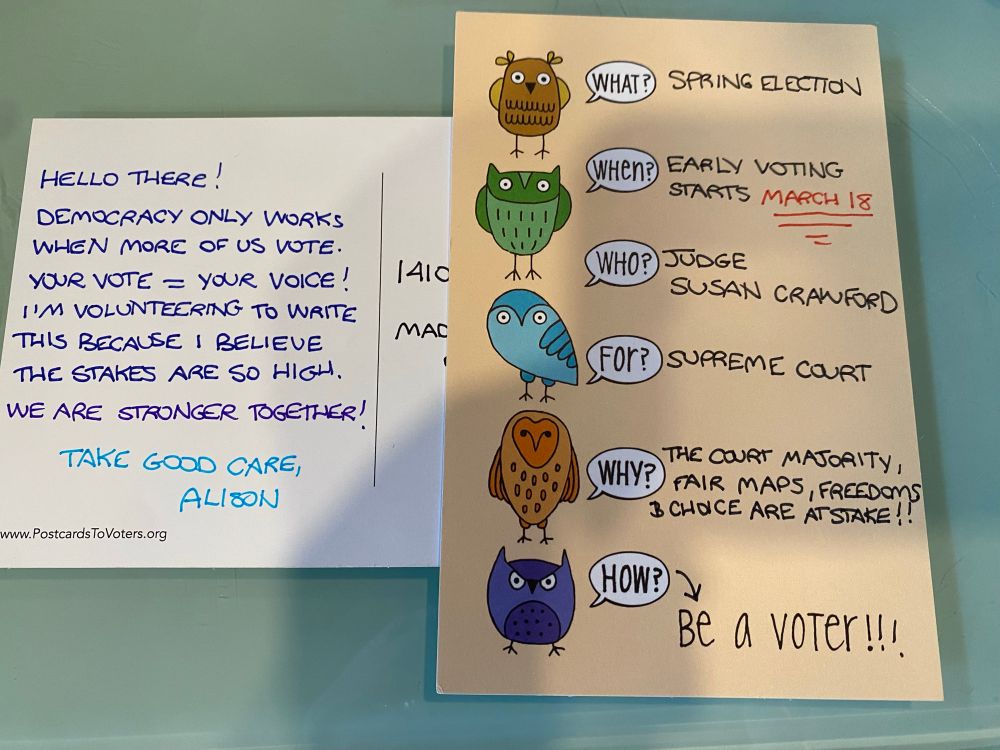 HELLO THERE!
DEMOCRACY ONLY WORKS
WHEN MORE OF US VOTE.
YOUR VOTE = YOUR VOICE!
I'M VOLUNTEERING TO WRITE
THIS BECAUSE I BELIEVE
THE STAKES ARE SO HIGH.
WE ARE STRONGER TOGETHER!
TAKE GOOD CARE,
ALISON
www.PostcardsToVoters.org
1410
MAD
WHAT? SPRING ELECTION
WHen? EARLY VOTING
STARTS MARCH 18
WHO? JUDGE
SUSAN CRAWFORD
FOR? SUPREME COURT
WHY? THE COURT MAJORITY,
FAIR MAPS, FREEDOMS
& CHOICE ARE AT STAKE!!
HOW?
Be a VOTer!!!